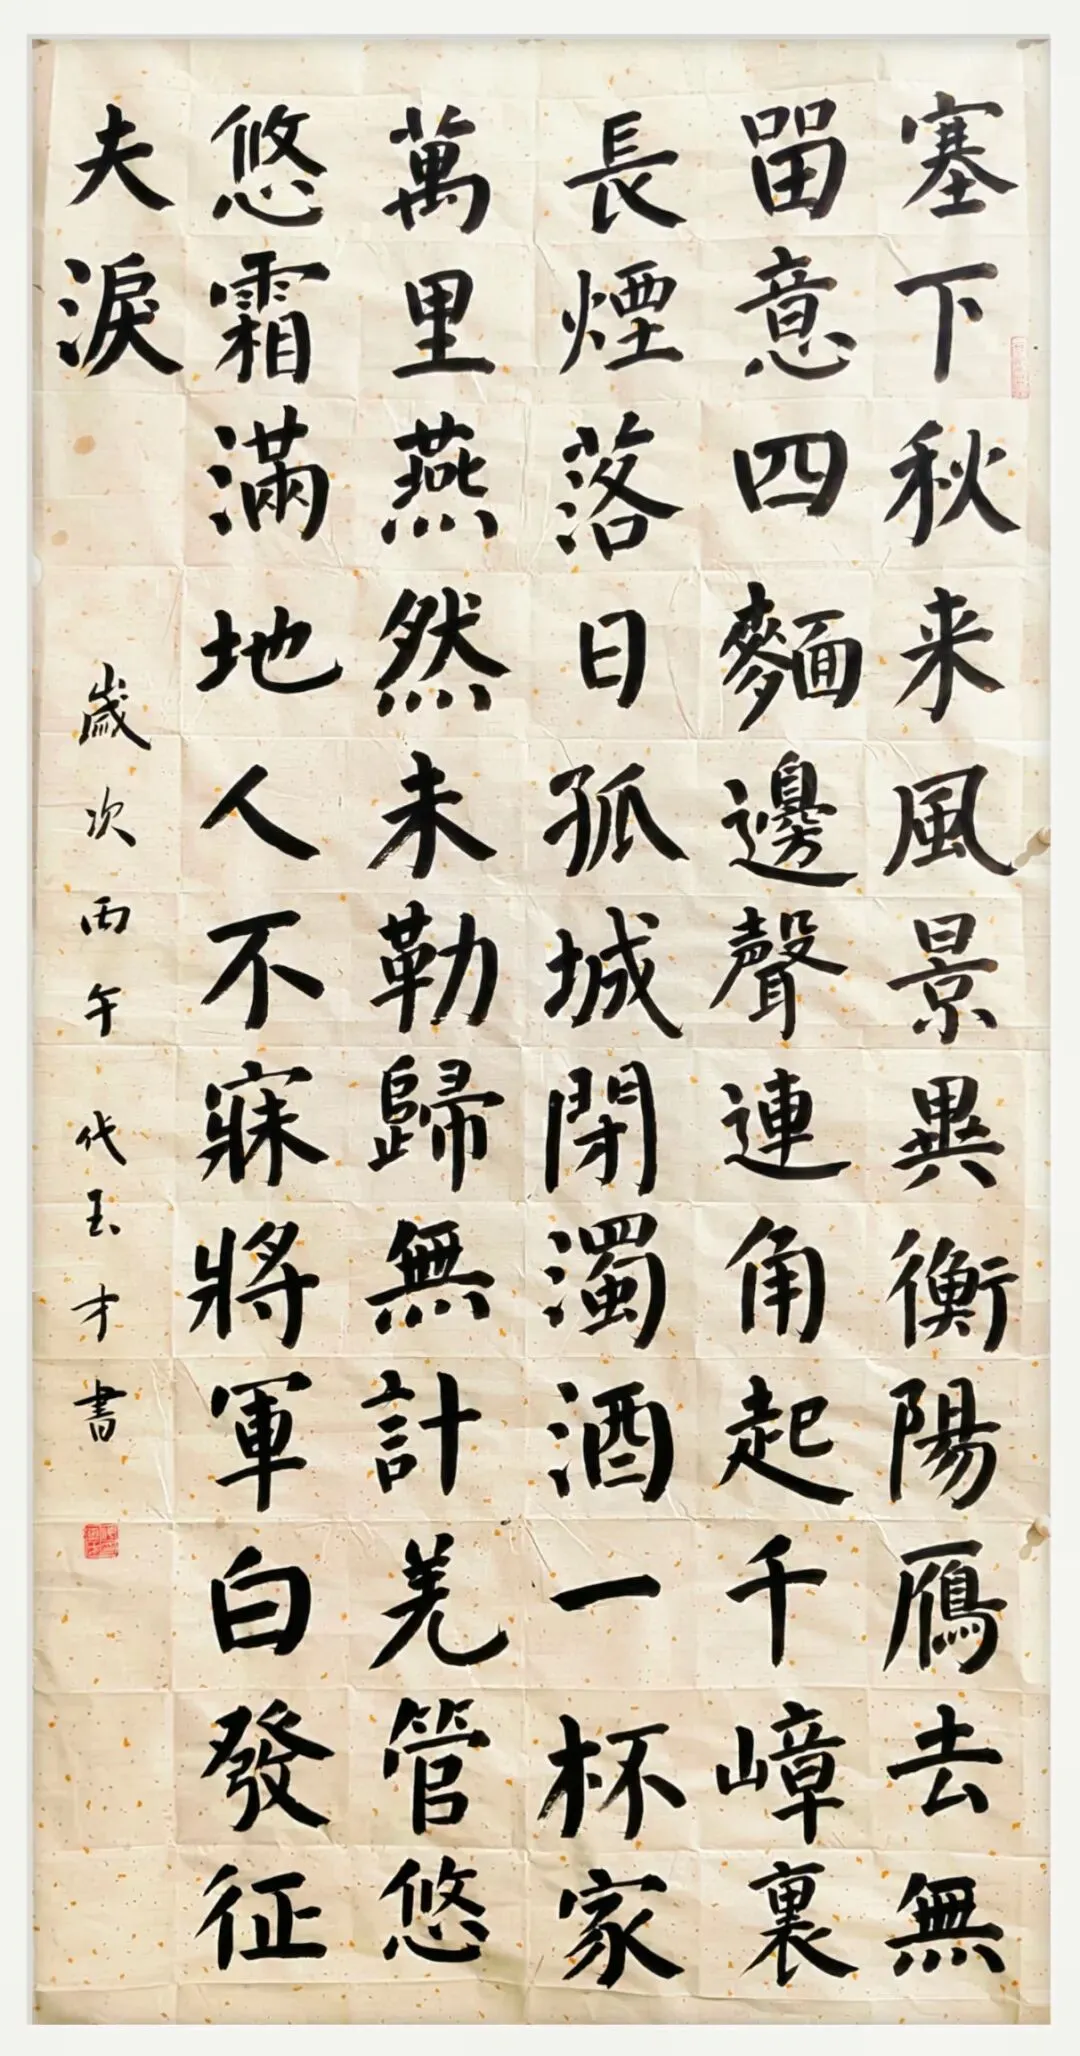 塞下秋来風景異衡陽鴈去無
留意四麵邊聲連角起千嶂裏
長煙落日孤城閉濁酒一杯家
萬里燕然未勒歸無計羌管悠
悠霜滿地人不寐將軍白發征
夫淚
歲次丙午 代玉才書